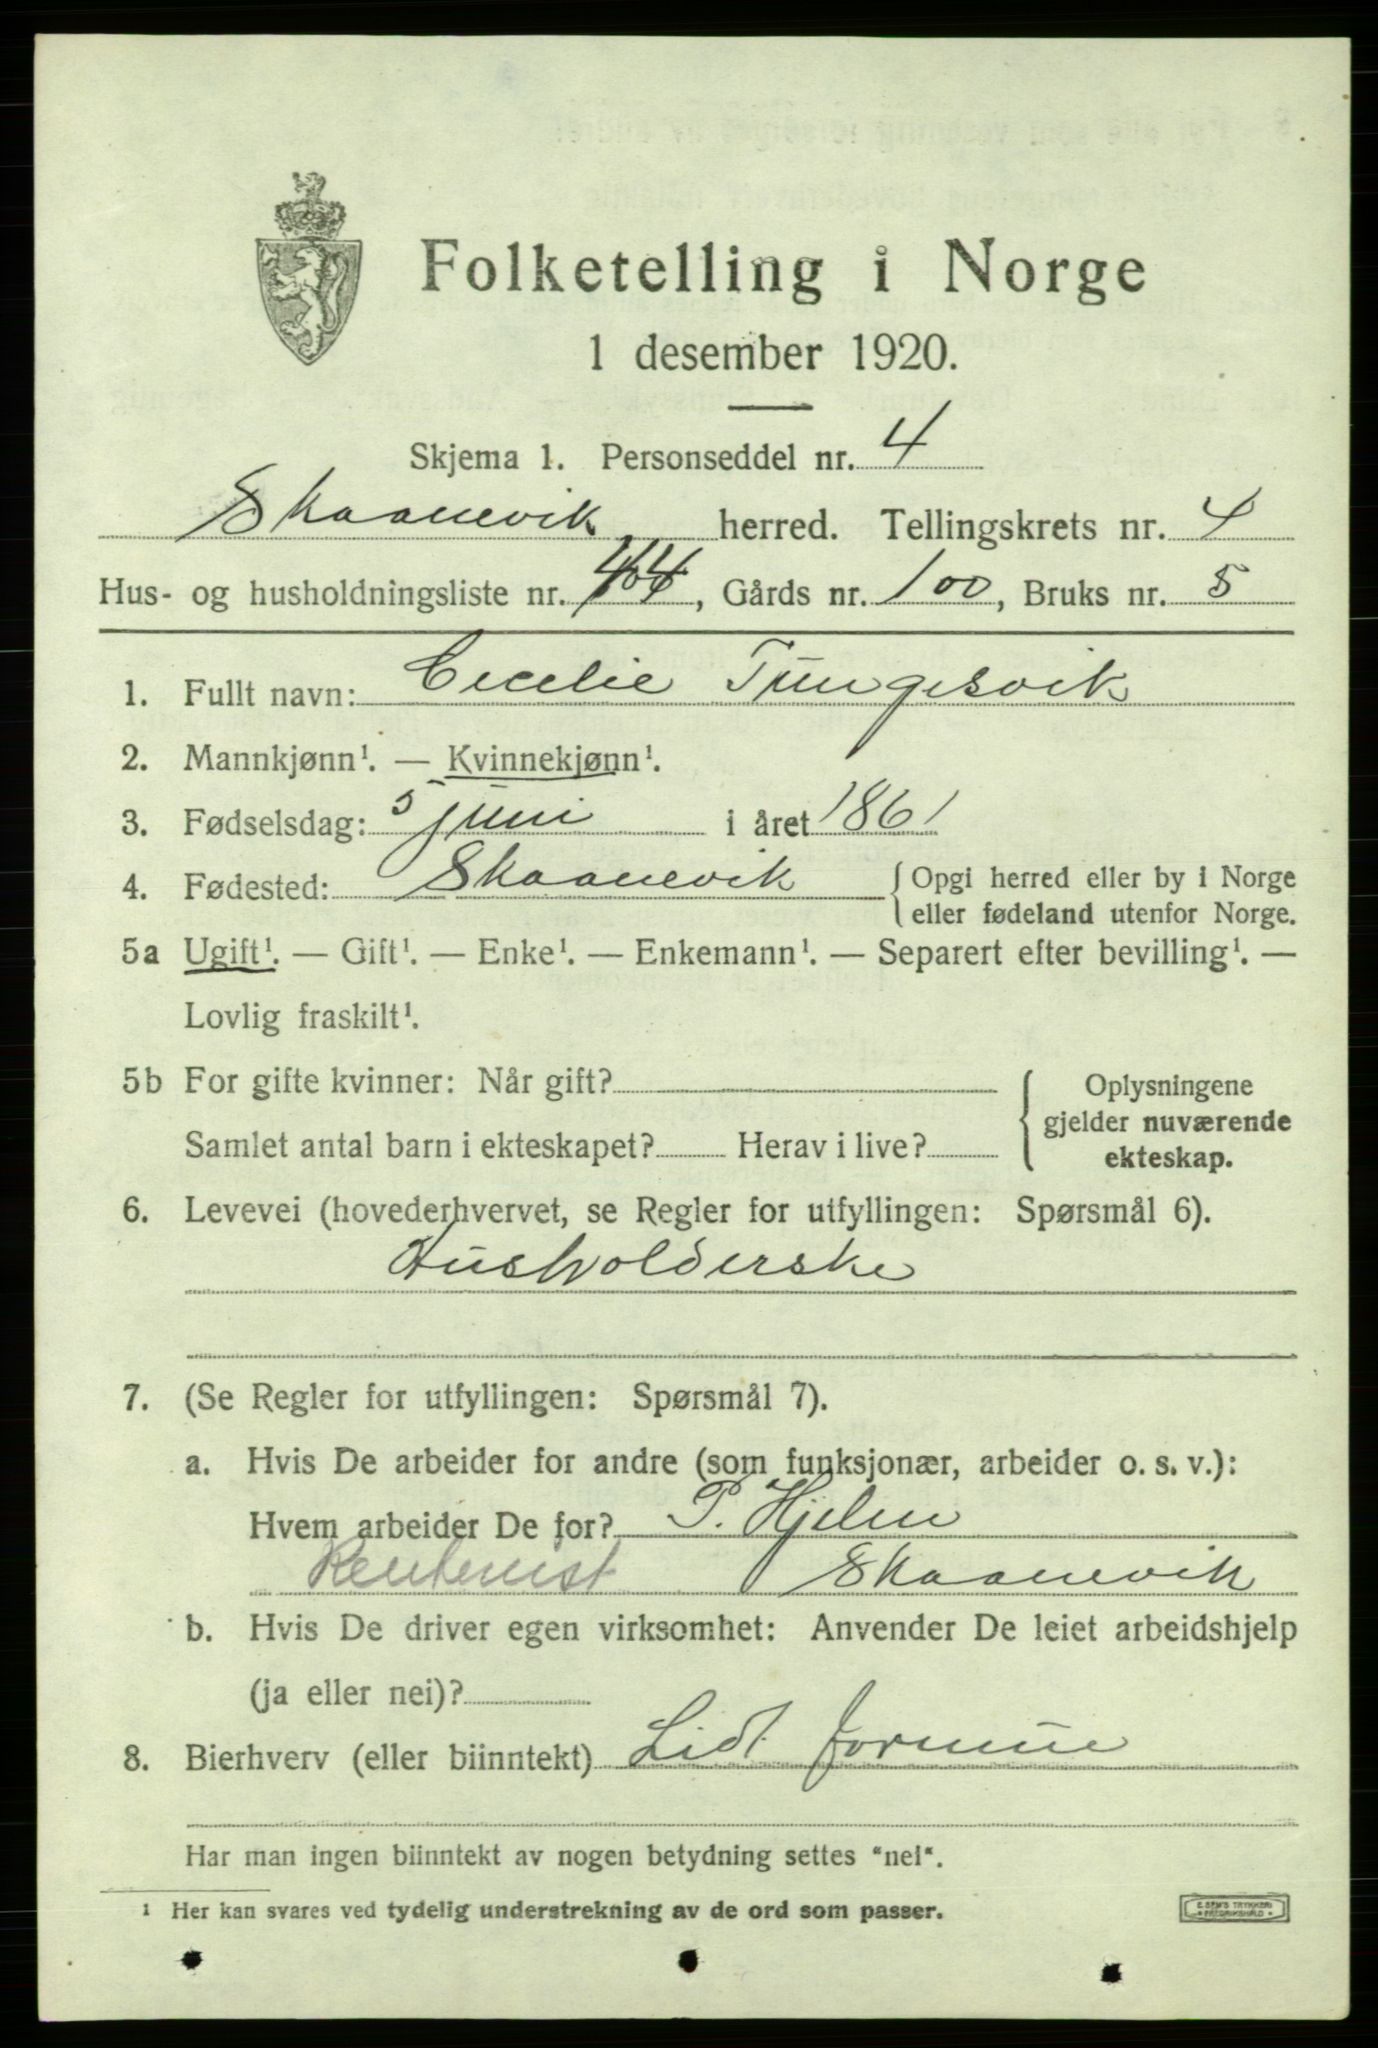 Folketelling i Norge
1 desember 1920.
Skjema 1. Personseddel nr. 4
Skaanevik herred. Tellingskrets nr. 4
Hus- og husholdningsliste nr. , Gårds nr. 100, Bruks nr. 5
1. Fullt navn: Cecelie Tungesvik
2. Mannkjønn¹. — Kvinnekjønn¹.
3. Fødselsdag: 5 juni i året 1861
4. Fødested: Skaanevik { Opgi herred eller by i Norge
eller fødeland utenfor Norge.
5a Ugift¹. — Gift¹. — Enke¹. — Enkemann¹. — Separert efter bevilling¹. —
Lovlig fraskilt¹.
5b For gifte kvinner: Når gift? { Oplysningene
gjelder nuværende
Samlet antal barn i ekteskapet? Herav i live?
ekteskap.
6. Levevei (hovederhvervet, se Regler for utfyllingen: Spørsmål 6).
Husholderske
7. (Se Regler for utfyllingen: Spørsmål 7).
a. Hvis De arbeider for andre (som funksjonær, arbeider o. s. v.):
Hvem arbeider De for? P. Hjelm
Rentenist Skaanevik
b. Hvis De driver egen virksomhet: Anvender De leiet arbeidshjelp
(ja eller nei)?
8. Bierhverv (eller biinntekt) Lidt formue
Har man ingen biinntekt av nogen betydning settes "nei".
¹ Her kan svares ved tydelig understrekning av de ord som passer.